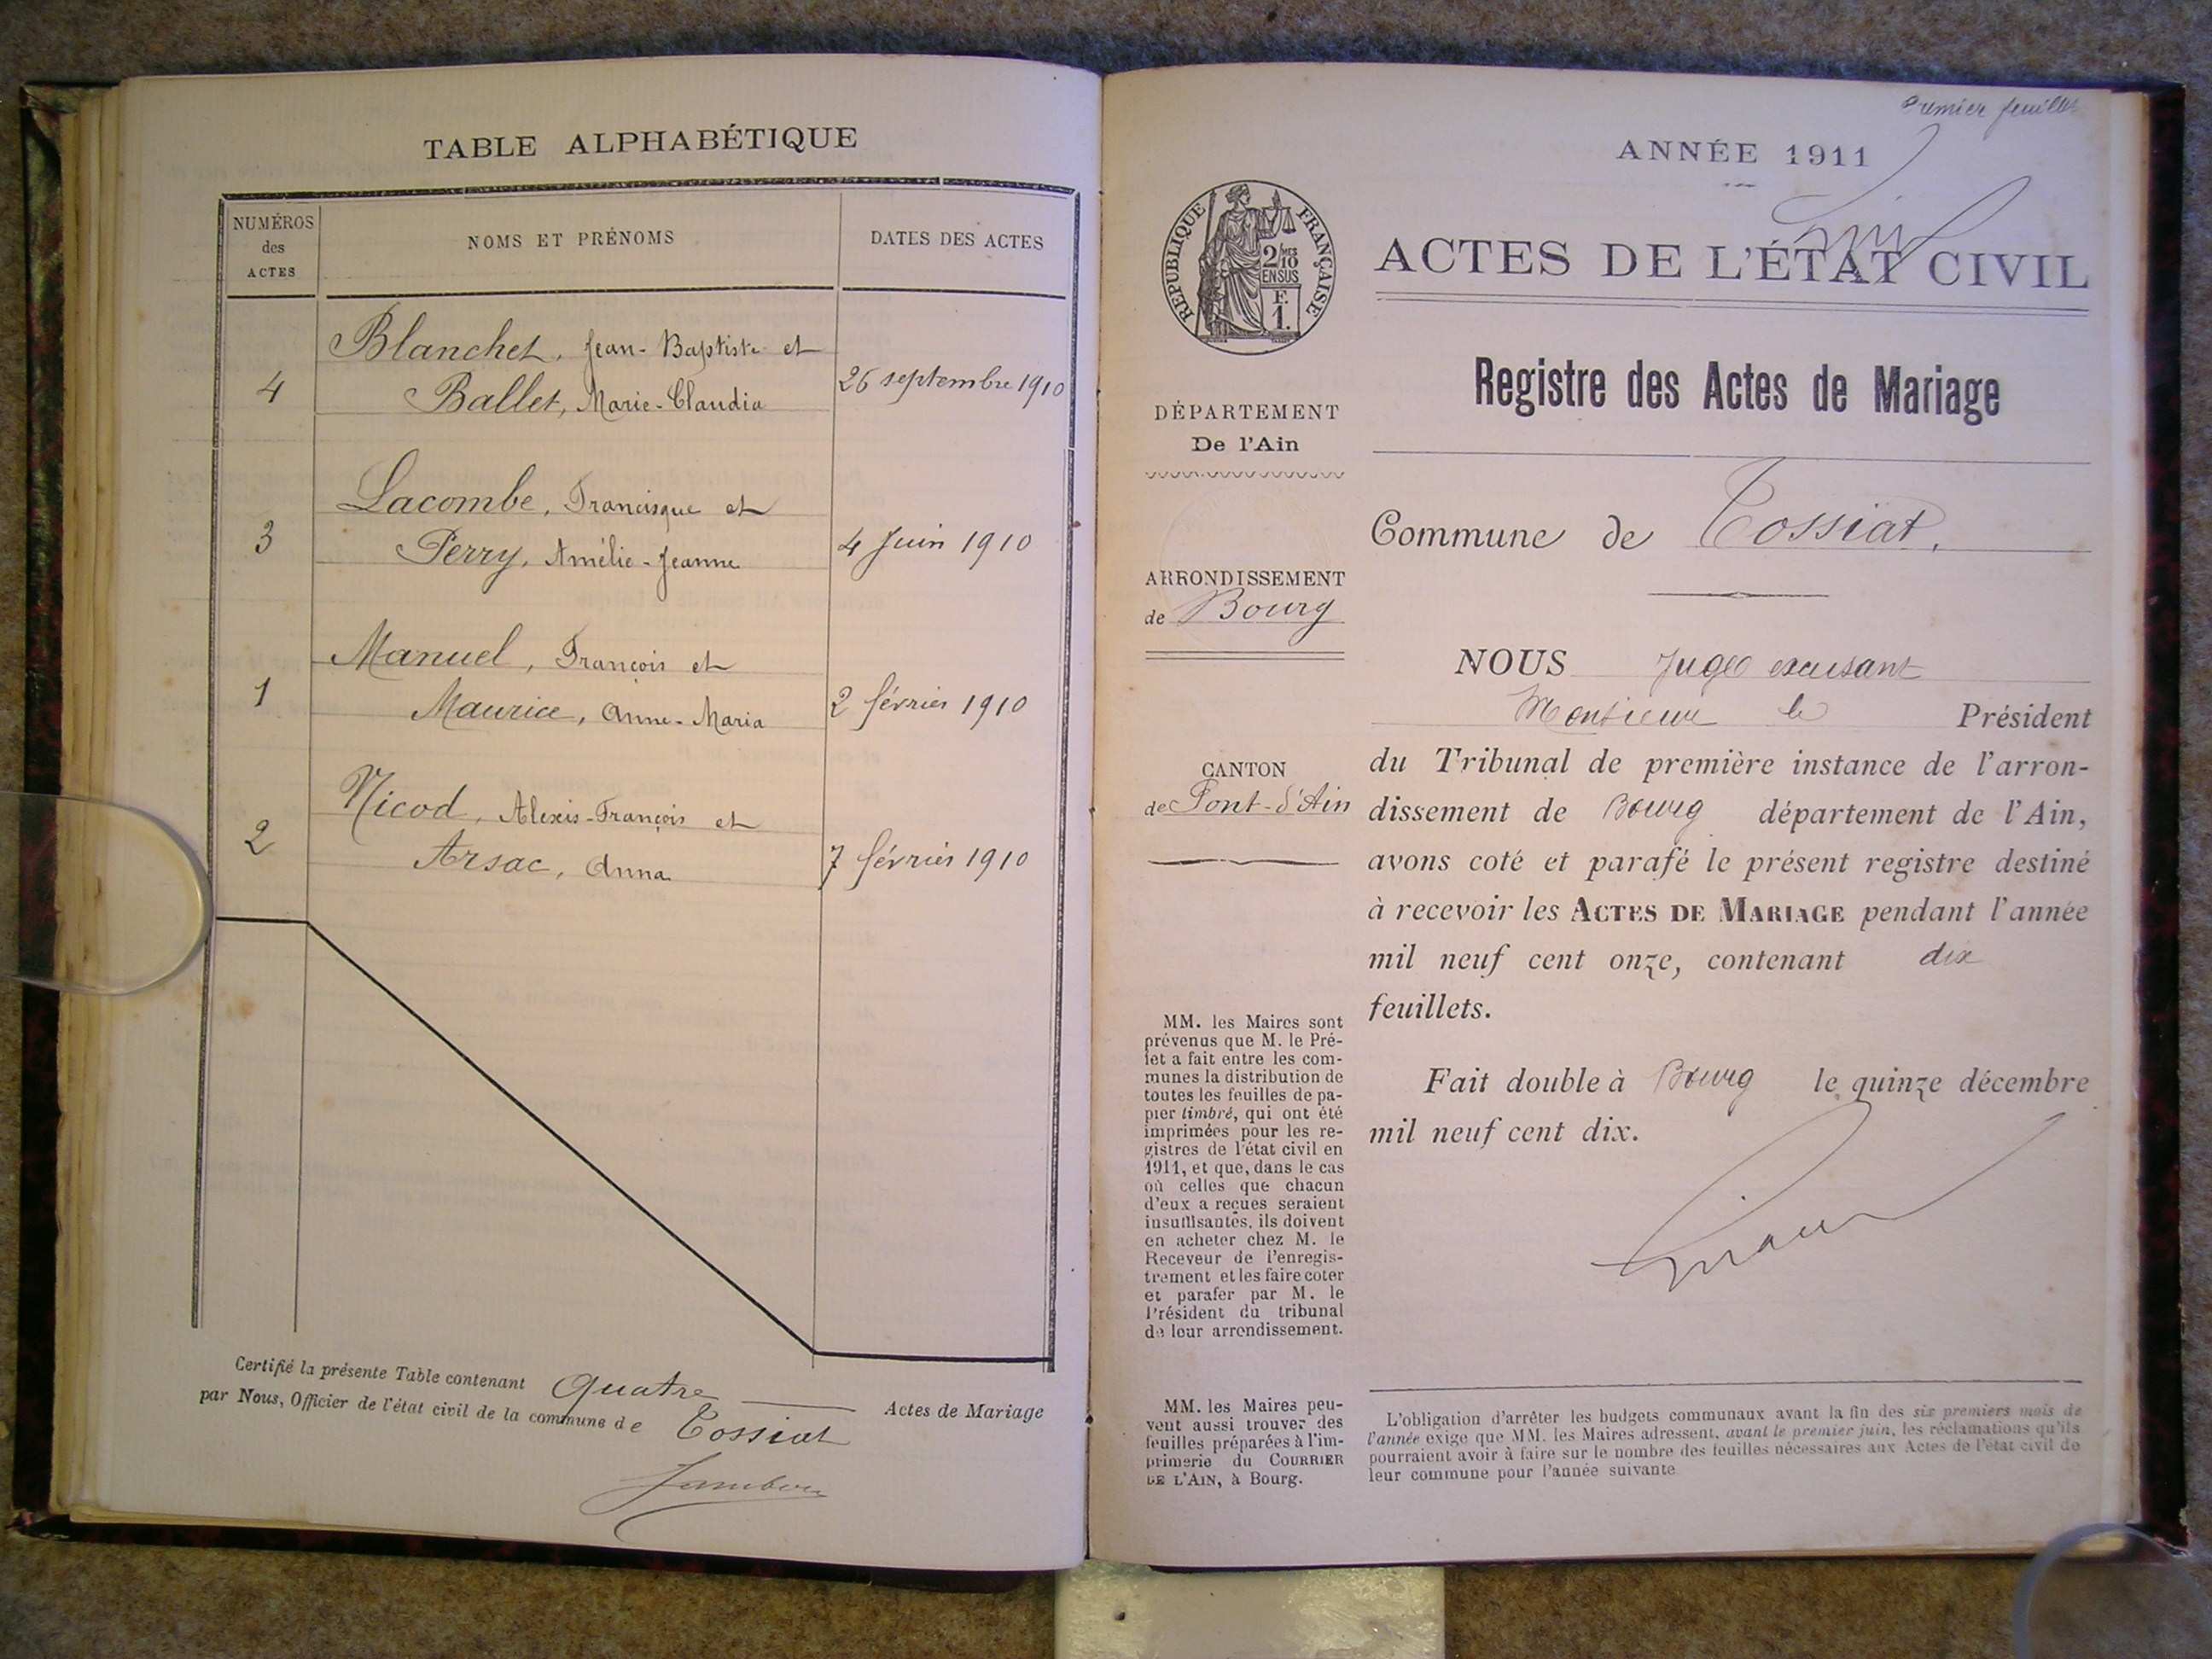 TABLE ALPHABÉTIQUE
NUMÉROS
des
ACTES
NOMS ET PRÉNOMS
DATES DES ACTES
Blanchet, Jean-Baptiste et
4
Ballet, Marie-Claudia
26 septembre 1910
Lacombe, Francisque et
3
Perry, Amélie-Jeanne
4 Juin 1910
Manuel, François et
1
Maurice, Anne-Maria
2 février 1910
Nicod, Alexis-François et
2
Arsac, Anna
7 février 1910
Certifié la présente Table contenant Quatre Actes de Mariage
par Nous, Officier de l'état civil de la commune de Tossiat
Premier feuillet
ANNÉE 1911
RÉPUBLIQUE FRANÇAISE
2/10 MES
EN SUS
F.
1.
ACTES DE L'ÉTAT CIVIL
Registre des Actes de Mariage
DÉPARTEMENT
De l'Ain
Commune de Tossiat.
ARRONDISSEMENT
de Bourg
CANTON
de Pont-d'Ain
NOUS Juge excusant
Monsieur le Président
du Tribunal de première instance de l'arron-
dissement de Bourg département de l'Ain,
avons coté et parafé le présent registre destiné
à recevoir les ACTES DE MARIAGE pendant l'année
mil neuf cent onze, contenant dix
feuillets.
Fait double à Bourg le quinze décembre
mil neuf cent dix.
MM. les Maires sont
prévenus que M. le Pré-
fet a fait entre les com-
munes la distribution de
toutes les feuilles de pa-
pier timbré, qui ont été
imprimées pour les re-
gistres de l'état civil en
1911, et que, dans le cas
où celles que chacun
d'eux a reçues seraient
insuffisantes, ils doivent
en acheter chez M. le
Receveur de l'enregis-
trement et les faire coter
et parafer par M. le
Président du tribunal
de leur arrondissement.
MM. les Maires peu-
vent aussi trouver des
feuilles préparées à l'im-
primerie du COURRIER
DE L'AIN, à Bourg.
L'obligation d'arrêter les budgets communaux avant la fin des six premiers mois de
l'année exige que MM. les Maires adressent, avant le premier juin, les réclamations qu'ils
pourraient avoir à faire sur le nombre des feuilles nécessaires aux Actes de l'état civil de
leur commune pour l'année suivante